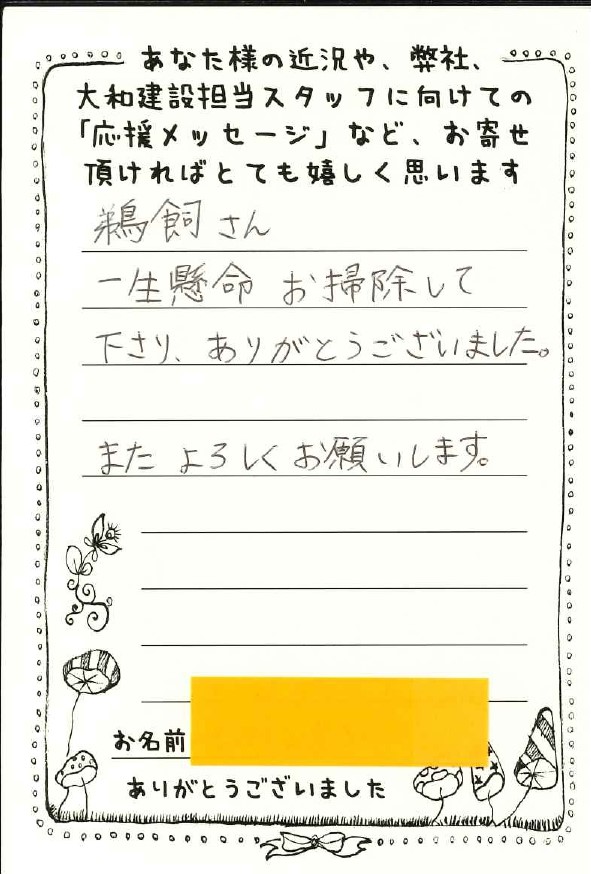 あなた様の近況や、弊社、
大和建設担当スタッフに向けての
「応援メッセージ」など、お寄せ
頂ければとても嬉しく思います
鵜飼さん
一生懸命 お掃除して
下さり、ありがとうございました。
また よろしく お願いします。
お名前
ありがとうございました